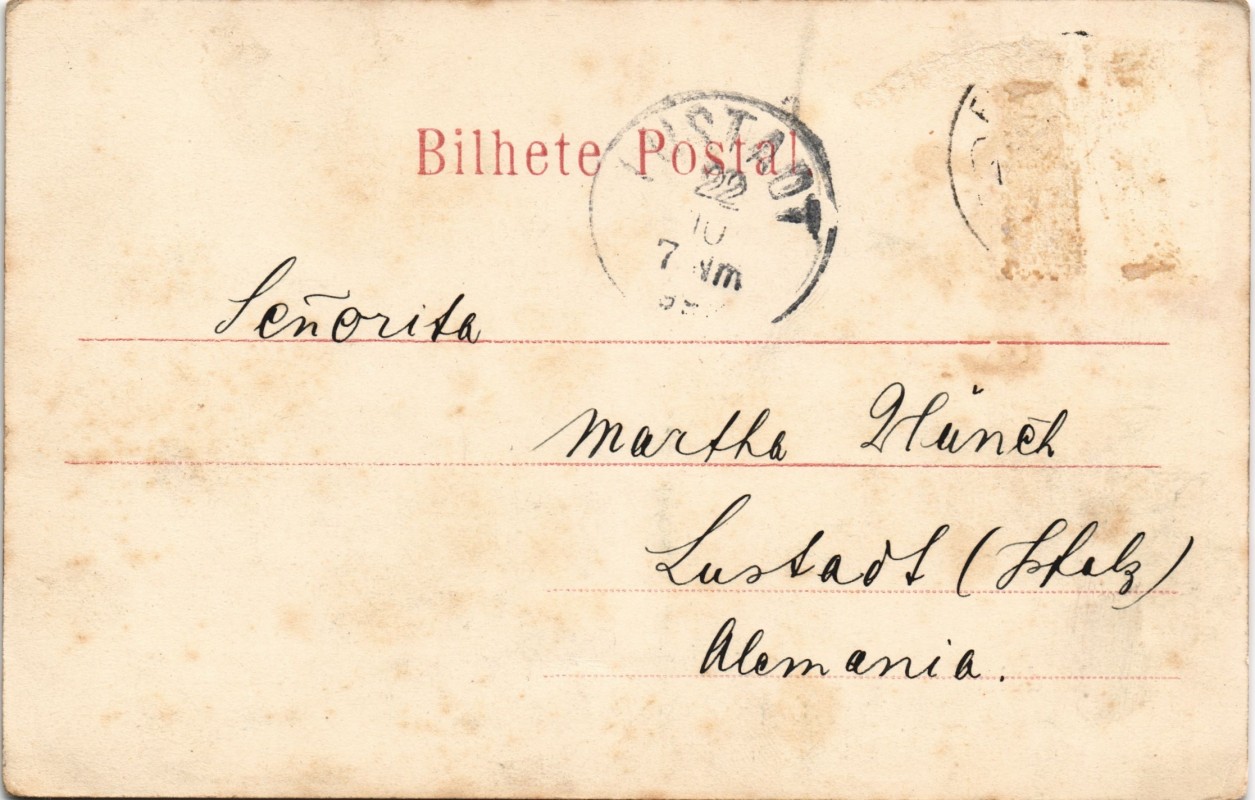 Bilhete Postal
LUSTADT
22
10
7 Nm
Señorita
Martha Münch
Lustadt (Pfalz)
Alemania.